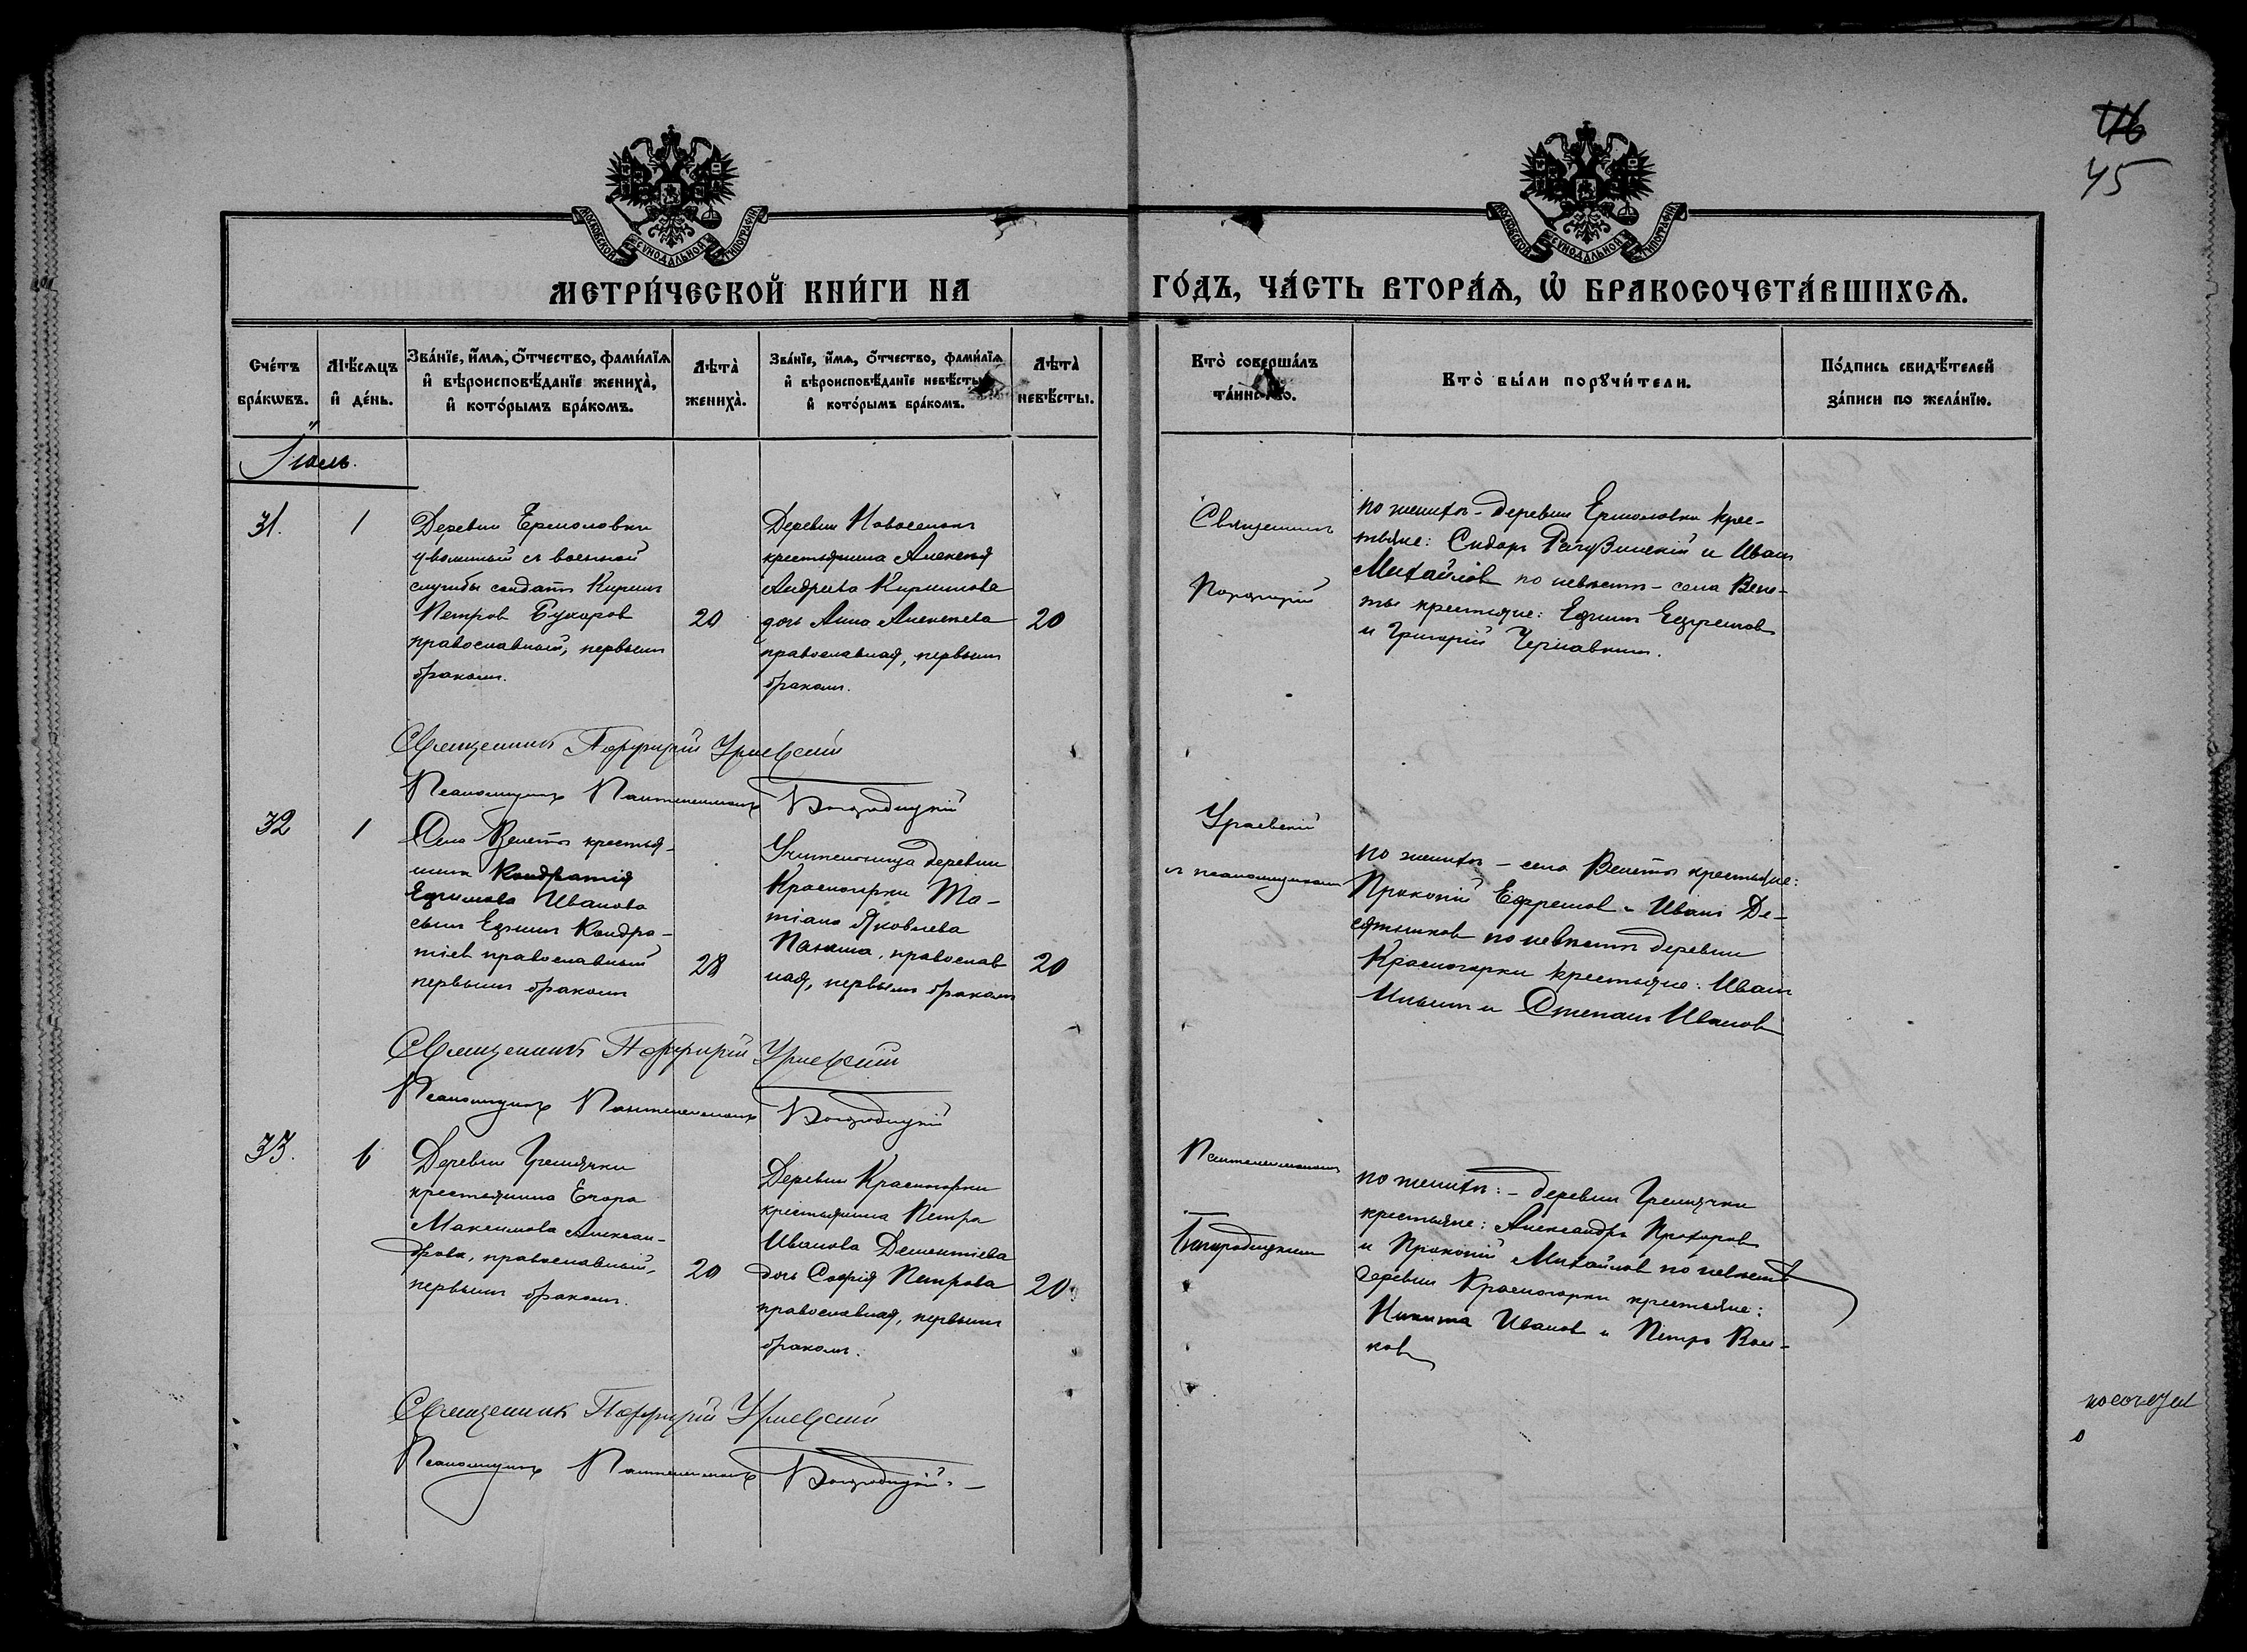 116
45
МОСКОВСКОЙ СѴНОДАЛЬНОЙ ТИПОГРАФІИ
МОСКОВСКОЙ СѴНОДАЛЬНОЙ ТИПОГРАФІИ
МЕТРИ́ЧЕСКОЙ КНИ́ГИ НА
ГО́ДЪ, ЧА́СТЬ ВТОРА́Ѧ, Ѡ҆ БРАКОСОЧЕТА́ВШИХСѦ.
Сче́тъ бра́кѡвъ.
Мѣ́сѧцъ и҆ де́нь.
Зва́нїе, и҆́мѧ, ѻ҆́тчество, фами́лїѧ и҆ вѣроисповѣ́данїе жениха̀, и҆ кото́рымъ бра́комъ.
Лѣта̀ жениха̀.
Зва́нїе, и҆́мѧ, ѻ҆́тчество, фами́лїѧ и҆ вѣроисповѣ́данїе невѣ́сты и҆ кото́рымъ бра́комъ.
Лѣта̀ невѣ́сты.
Кто̀ соверша́лъ та́инство.
Кто̀ бы́ли порꙋчи́тели.
По́дпись свидѣ́телей за́писи по жела́нїю.
Іюль.
31.
1
Деревни Ермоловки
уволенный съ военной
службы солдатъ Кирилъ
Петров Бухаров
православный, первымъ
бракомъ.
20
Деревни Новоселокъ
крестьянина Алексея
Андреева Кириллова
дочь Анна Алексеева
православная, первымъ
бракомъ.
20
Священникъ
Порфирій
по женихѣ - деревни Ермоловки крес-
тьяне: Сидоръ и Иванъ
Михайлов по невѣстѣ - села Вене-
ты крестьяне: Ефимъ Ефремов
и Григорій Чернавкин.
Священникъ Порфирій Ураевскій
Псаломщикъ Пантелеимонъ Богородицкій
32
1
Села Венетъ крестья-
нина Кондратія
Ефимова Иванова
сынъ Ефимъ Кондра-
тіев православный
первымъ бракомъ
28
Учительница деревни
Красногорки Та-
тіана Яковлева
православ
ная, первымъ бракомъ
20
Ураевскій
съ псаломщикомъ
по женихѣ - села Венетъ крестьяне:
Прокопій Ефремов и Иванъ Де-
сятников по невѣстѣ деревни
Красногорки крестьяне: Иванъ
Ильин и Степанъ Иванов
Священникъ Порфирій Ураевскій
Псаломщикъ Пантелеимонъ Богородицкій
33.
6
Деревни Гремячки
крестьянина Егора
Максимова Алексан-
дрова, православный,
первымъ бракомъ.
20
Деревни Красногорки
крестьянина Петра
Иванова Дементіева
дочь Софія Петрова
православная, первымъ
бракомъ.
20
Пантелеимономъ
Богородицкимъ
по женихѣ: - деревни Гремячки
крестьяне: Александръ Прохоров
и Прокопій Михайлов по невѣстѣ
деревни Красногорки крестьяне:
Никита Иванов и Петръ Вол-
ков
Священникъ Порфирій Ураевскій
Псаломщикъ Пантелеимонъ Богородицкій.